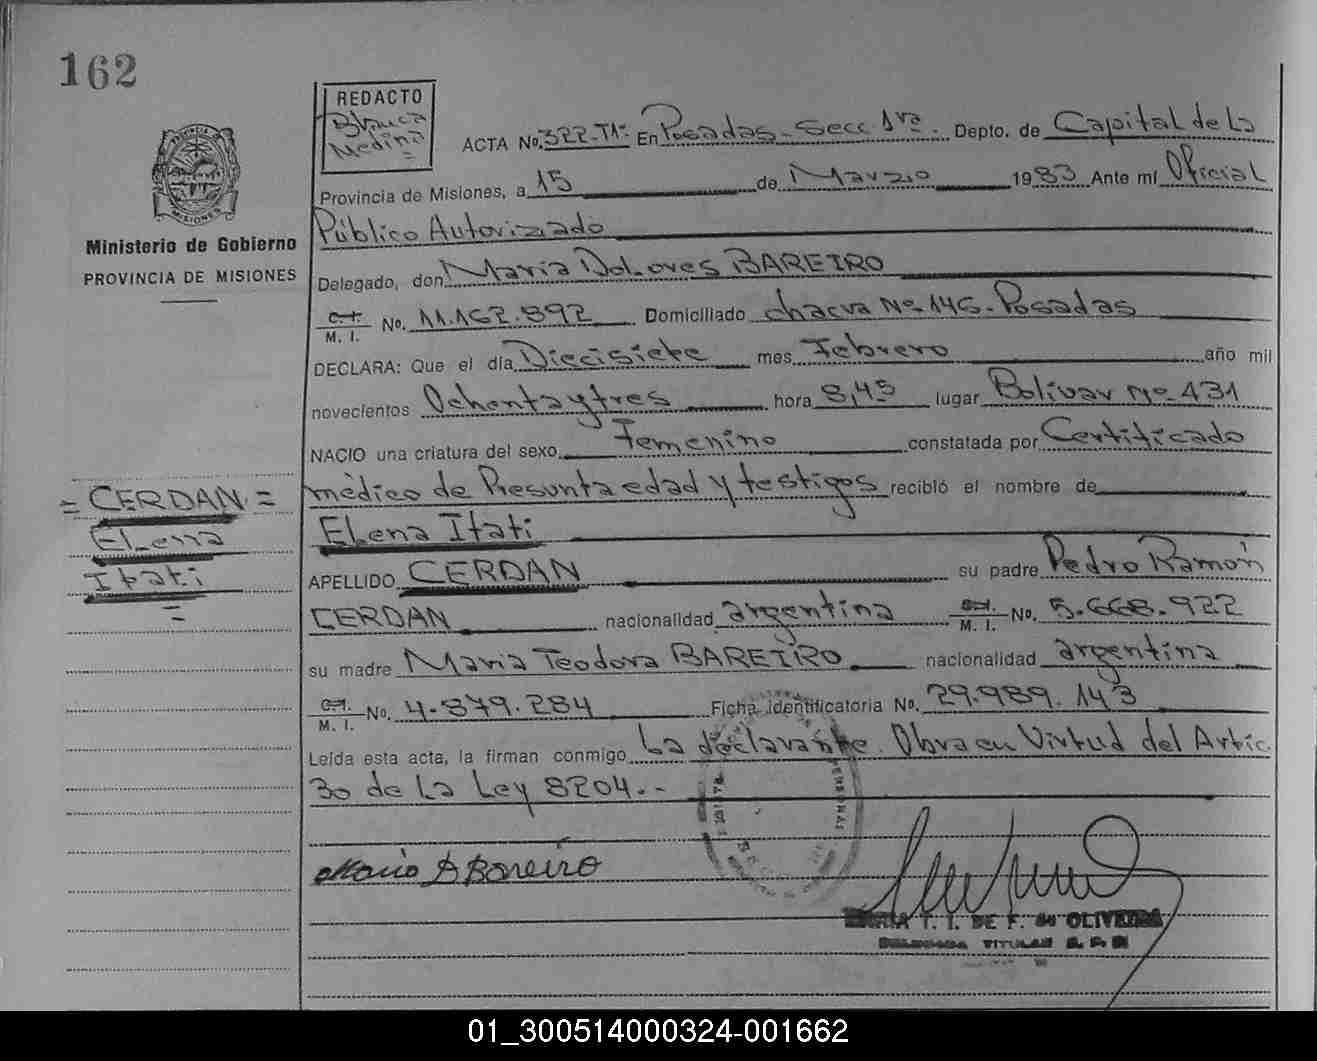 162
REDACTO
Blanca
Medina
ACTA No. 322-T1º En Posadas - Secc 1ra. Depto. de Capital de La
Provincia de Misiones, a 15 de Marzo 1983 Ante mí Oficial
Público Autorizado
Ministerio de Gobierno
PROVINCIA DE MISIONES
MISIONES
Delegado, don María Dolores BAREIRO
C. I.
M. I. No. 11.162.892 Domiciliado chacra Nº 146. Posadas
DECLARA: Que el día Diecisiete mes Febrero año mil
novecientos Ochenta y tres hora 8,45 lugar Bolívar Nº 431
NACIO una criatura del sexo Femenino constatada por Certificado
mèdico de Presunta edad y testigos recibió el nombre de
= CERDAN =
Elena
Itati
=
Elena Itati
APELLIDO CERDAN su padre Pedro Ramón
CERDAN nacionalidad argentina C. I. M. I. No. 5.668.922
su madre Maria Teodora BAREIRO nacionalidad argentina
C. I.
M. I. No. 4.879.284 Ficha identificatoria No. 29.989.143
Leída esta acta, la firman conmigo La declarante. Obra en Virtud del Artic.
30 de La Ley 8204.--
Maria D Bareiro
MARIA T. I. DE F. de OLIVEIRA
DELEGADA TITULAR
01_300514000324-001662